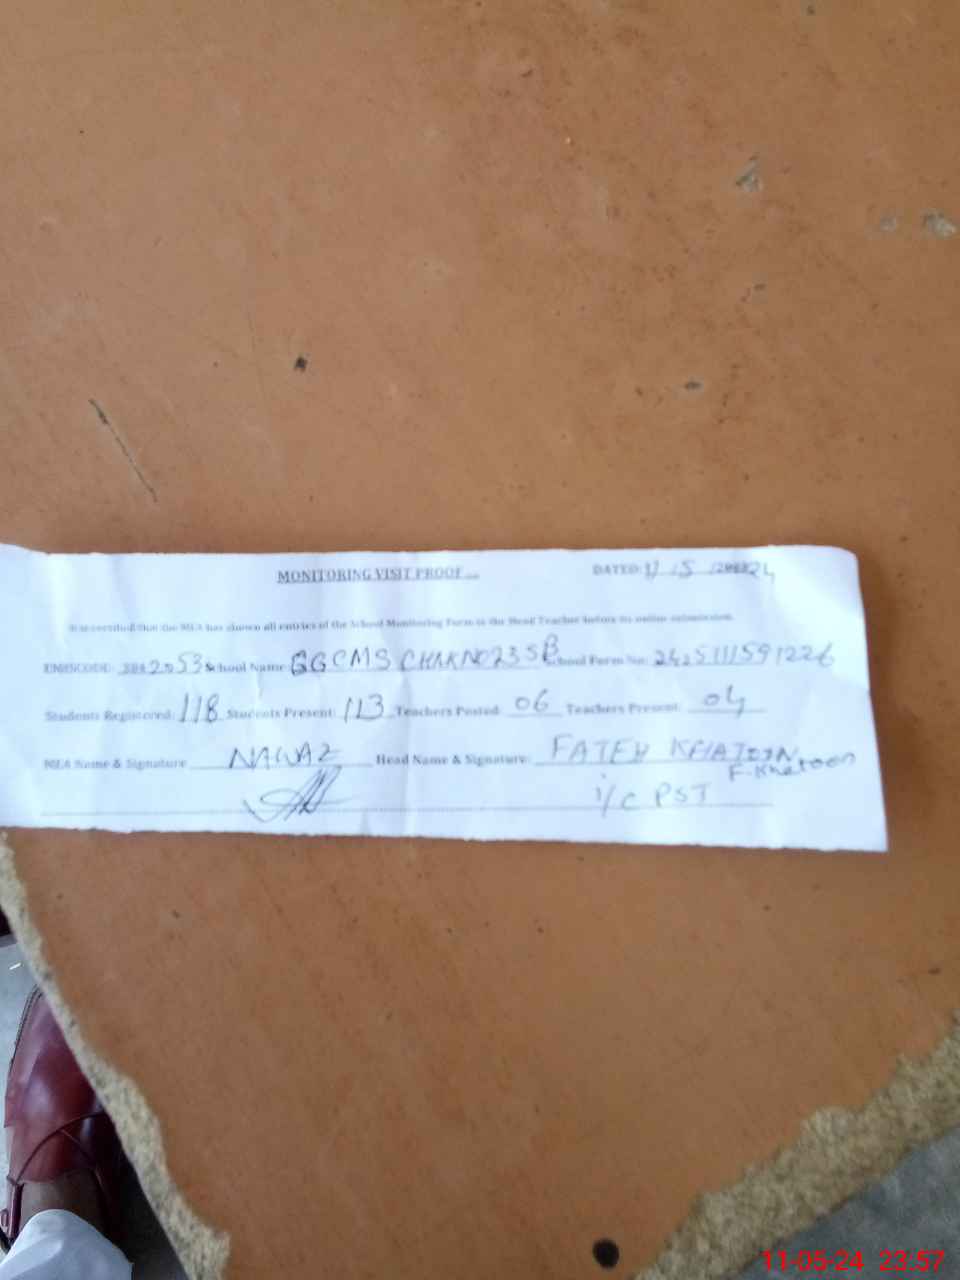 MONITORING VISIT PROOF
DATED: 11 / 5 / 2024
It is certified that the MEA has shown all entries of the School Monitoring Form to the Head Teacher before its online submission.
EMISCODE: 2053 School Name GGCMS CHAK NO 23 SB School Form No: 2425111591226
Students Registered: 118 Students Present: 113 Teachers Posted: 06 Teachers Present: 04
MEA Name & Signature NAWAZ Head Name & Signature: FATEH KHATOON
F. Khatoon
i/c PST
11-05-24 23:57